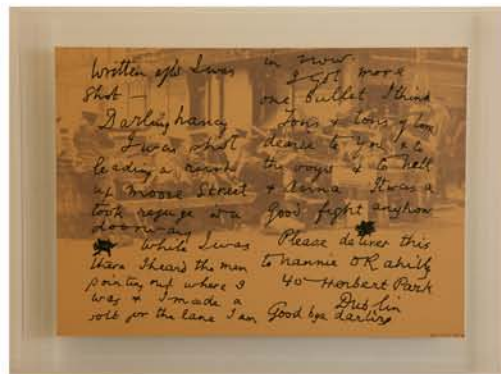 Written after I was
shot —
Darling Nancy
I was shot
leading a rush
up Moore Street
took refuge in a
doorway
While I was
there I heard the men
pointing out where I
was & I made a
bolt for the lane I am
in now.
I got more
one bullet I think
Tons & tons of love
dearie to you & to
the boys & to Nell
& Anna It was a
good fight anyhow
Please deliver this
to Nannie O Rahilly
40 Herbert Park
Dublin
Good bye darling